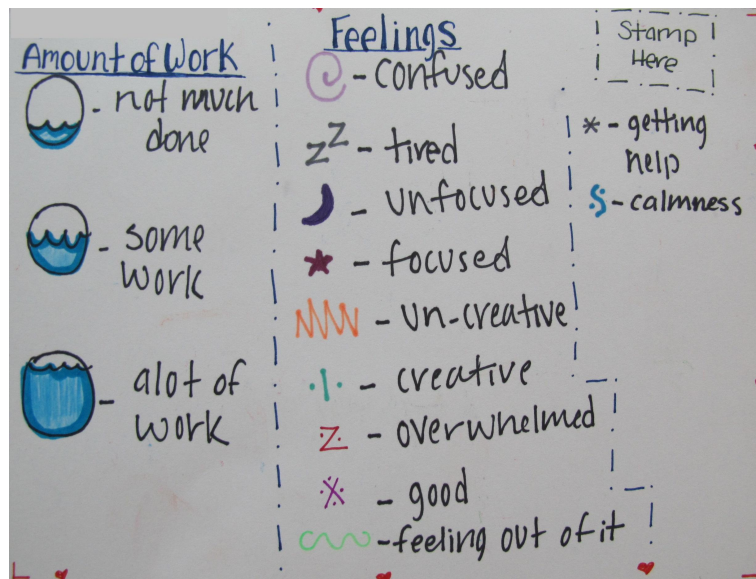 Amount of Work
- not much
done
- some
work
- alot of
work
Feelings
- confused
zz - tired
- unfocused
- focused
- un-creative
- creative
- overwhelmed
- good
- feeling out of it
Stamp
Here
* - getting
help
- calmness